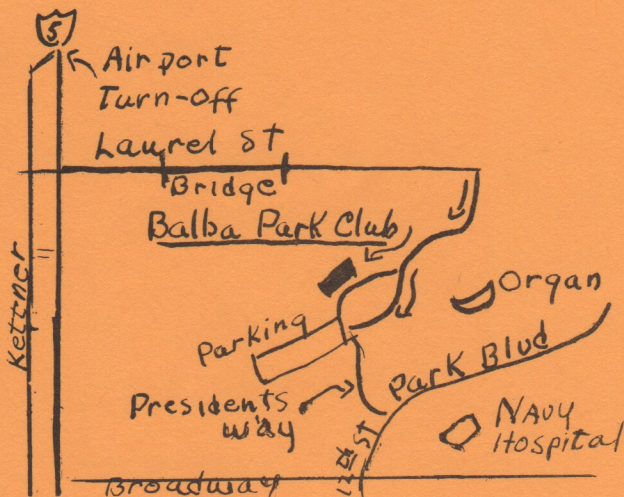 5
Airport
Turn-Off
Laurel St
Bridge
Balba Park Club
Kettner
Organ
Parking
Park Blvd
Presidents
Way
NAVY
Hospital
12th St
Broadway